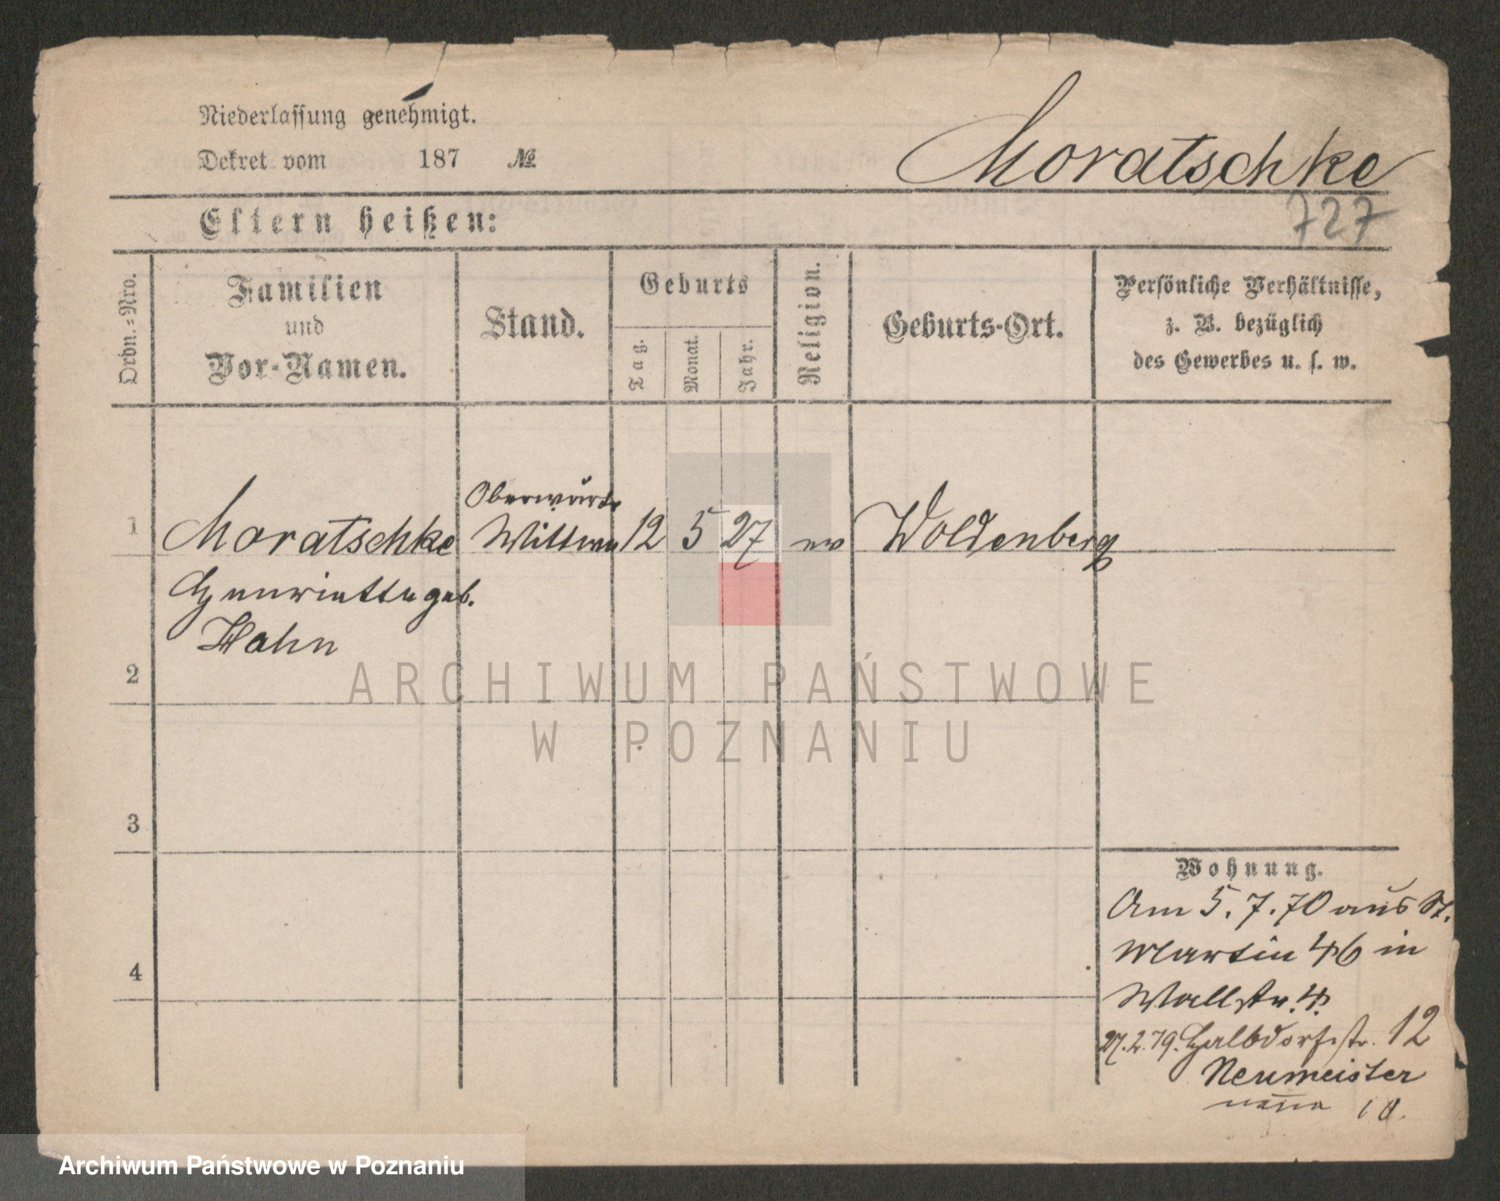 Niederlassung genehmigt.
Dekret vom 187 №
Moratschke
727
Eltern heißen:
Ordn.=Nro.
Familien
und
Vor-Namen.
Stand.
Geburts
Tag.
Monat.
Jahr.
Religion.
Geburts-Ort.
Persönliche Verhältnisse,
z. B. bezüglich
des Gewerbes u. s. w.
1 Moratschke Wittwe 12 5 27 ev Woldenberg
Henriette geb.
Hahn
2
ARCHIWUM PAŃSTWOWE
W POZNANIU
3
Wohnung.
Am 5. 7. 70 aus St.
Martin 46 in
4
Wallstr. 4.
27.2.79. Halbdorfstr. 12
Neumeister
Archiwum Państwowe w Poznaniu